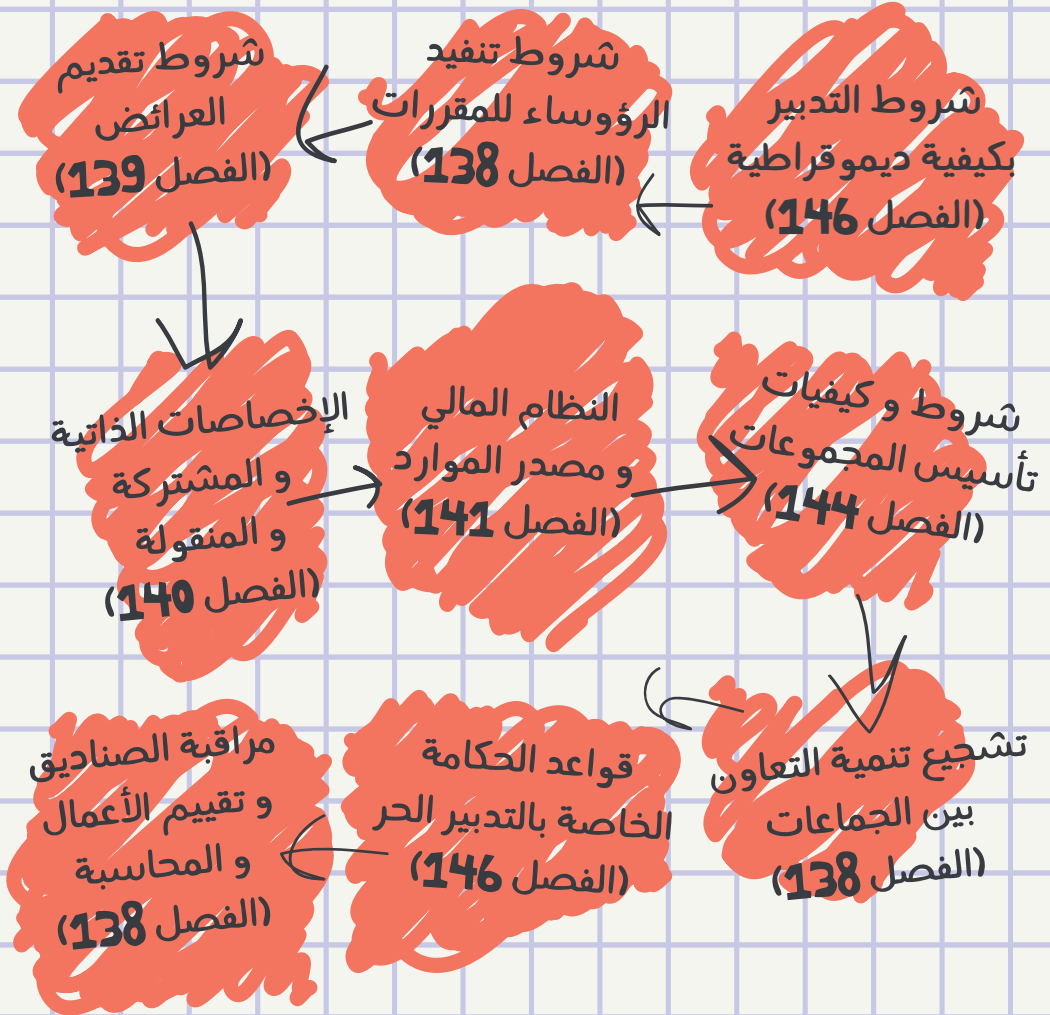 شروط التدبير
بكيفية ديموقراطية
(الفصل 146)
شروط تنفيد
الرؤوساء للمقررات
(الفصل 138)
شروط تقديم
العرائض
(الفصل 139)
الإخصاصات الذاتية
و المشتركة
و المنقولة
(الفصل 140)
النظام المالي
و مصدر الموارد
(الفصل 141)
شروط و كيفيات
تأسيس المجموعات
(الفصل 144)
تشجيع تنمية التعاون
بين الجماعات
(الفصل 138)
قواعد الحكامة
الخاصة بالتدبير الحر
(الفصل 146)
مراقبة الصناديق
و تقييم الأعمال
و المحاسبة
(الفصل 138)